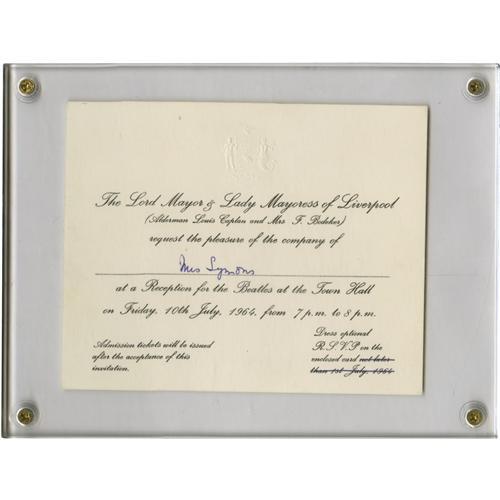 The Lord Mayor & Lady Mayoress of Liverpool
(Alderman Louis Caplan and Mrs. F. Bodeker)
request the pleasure of the company of
Mrs Symons
at a Reception for the Beatles at the Town Hall
on Friday, 10th July, 1964, from 7 p.m. to 8 p.m.
Admission tickets will be issued
after the acceptance of this
invitation.
Dress optional
R.S.V.P. on the
enclosed card not later
than 1st July, 1964